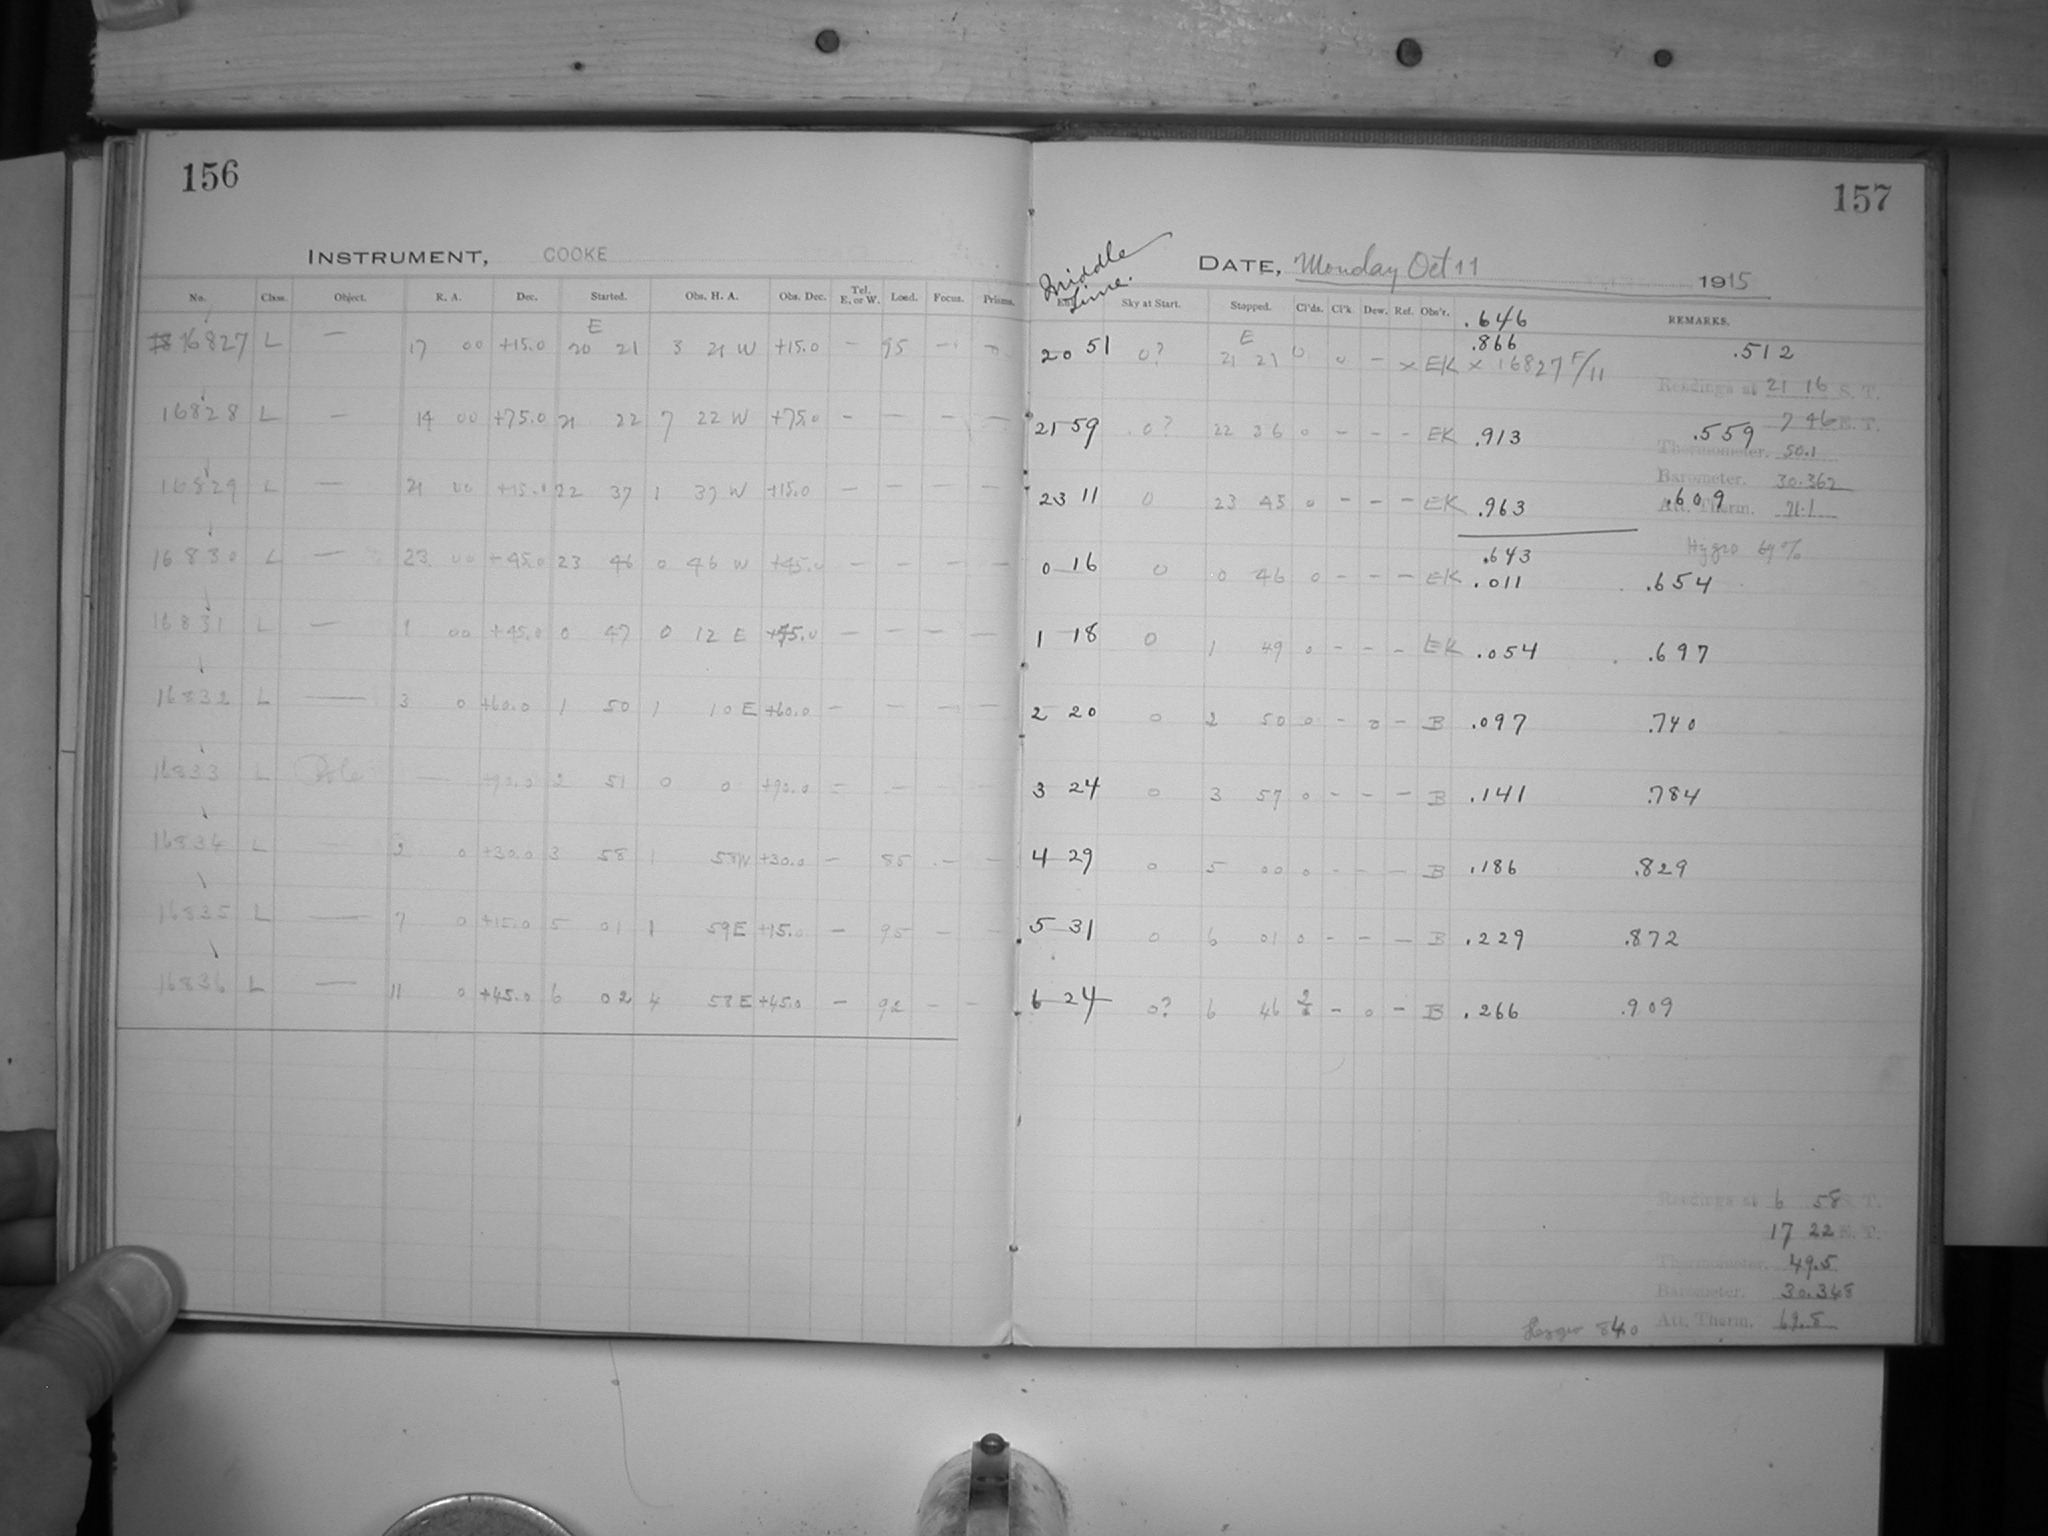 156
INSTRUMENT, COOKE
No. Class. Object. R. A. Dec. Started. Obs. H. A. Obs. Dec. Tel. E. or W. Load. Focus. Prisms.
16827 L — 17 00 +15.0 E 20 21 3 21 W +15.0 — 95 — —
16828 L — 14 00 +75.0 21 22 7 22 W +75.0 — — — —
16829 L — 21 00 +15.0 22 37 1 37 W +15.0 — — — —
16830 L — 23 00 +45.0 23 46 0 46 W +45.0 — — — —
16831 L — 1 00 +45.0 0 47 0 12 E +45.0 — — — —
16832 L — 3 0 +60.0 1 50 1 10 E +60.0 — — — —
16833 L Pole — +90.0 2 51 0 0 +90.0 — — — —
16834 L — 2 0 +30.0 3 58 1 58W +30.0 — 85 — —
16835 L — 7 0 +15.0 5 01 1 59E +15.0 — 95 — —
16836 L — 11 0 +45.0 6 02 4 58E +45.0 — 92 — —
157
DATE, Monday Oct 11 1915
Middle Time.
Sky at Start. Stopped. Cl'ds. Cl'k. Dew. Ref. Obs'r. REMARKS.
.646
20 51 0? E 21 21 0 0 — x EK .866 x 16827 F/11 .512
Readings at 21 16 S. T.
7 46 E. T.
21 59 0? 22 36 0 - - - EK .913 .559
Thermometer. 50.1
Barometer. 30.362
23 11 0 23 45 0 - - - EK .963 .609
Att. Therm. 71.1
Hygro 69%
.643
0 16 0 0 46 0 - - - EK .011 .654
1 18 0 1 49 0 - - - EK .054 .697
2 20 0 2 50 0 - 0 - B .097 .740
3 24 0 3 57 0 - - - B .141 .784
4 29 0 5 00 0 - - - B .186 .829
5 31 0 6 01 0 - - - B .229 .872
6 24 0? 6 46 - 0 - B .266 .909
Readings at 6 58 S. T.
17 22 E. T.
Thermometer. 49.5
Barometer. 30.348
Att. Therm. 69.8
84.0